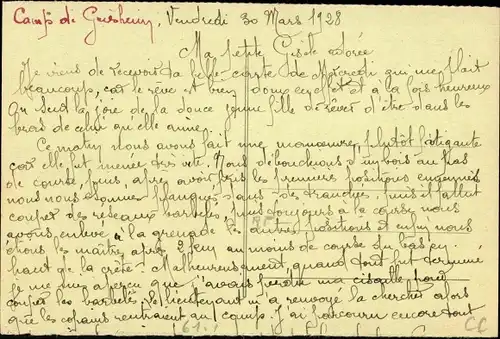 Camp de Geisheim, Vendredi 30 Mars 1928
Ma petite Gisèle adorée
Je viens de recevoir ta belle carte de Mercredi qui me plait
beaucoup, car le rêve est bien doux et à la fois heureux
On sent la joie de la douce jeune fille de rêver d'être dans les
bras de celui qu'elle aime.
Ce matin nous avons fait une manoeuvre, plutôt fatigante
car elle fut menée très vite. Nous débouchions d'un bois au pas
de course, puis, après avoir pris les premières positions ennemies
nous nous sommes planqués dans des tranchées, puis il fallut
couper des réseaux barbelés, puis toujours à la course nous
avons enlevé à la grenade les autres positions et enfin nous
étions les maîtres après 2 km au moins de course du bas en
haut de la crête. Malheureusement quand tout fut terminé
je me suis aperçu que j'avais perdu ma cisaille pour
couper les barbelés, le lieutenant m'a renvoyé la chercher alors
que les copains rentraient au camp. J'ai parcouru encore tout
61.1
CC